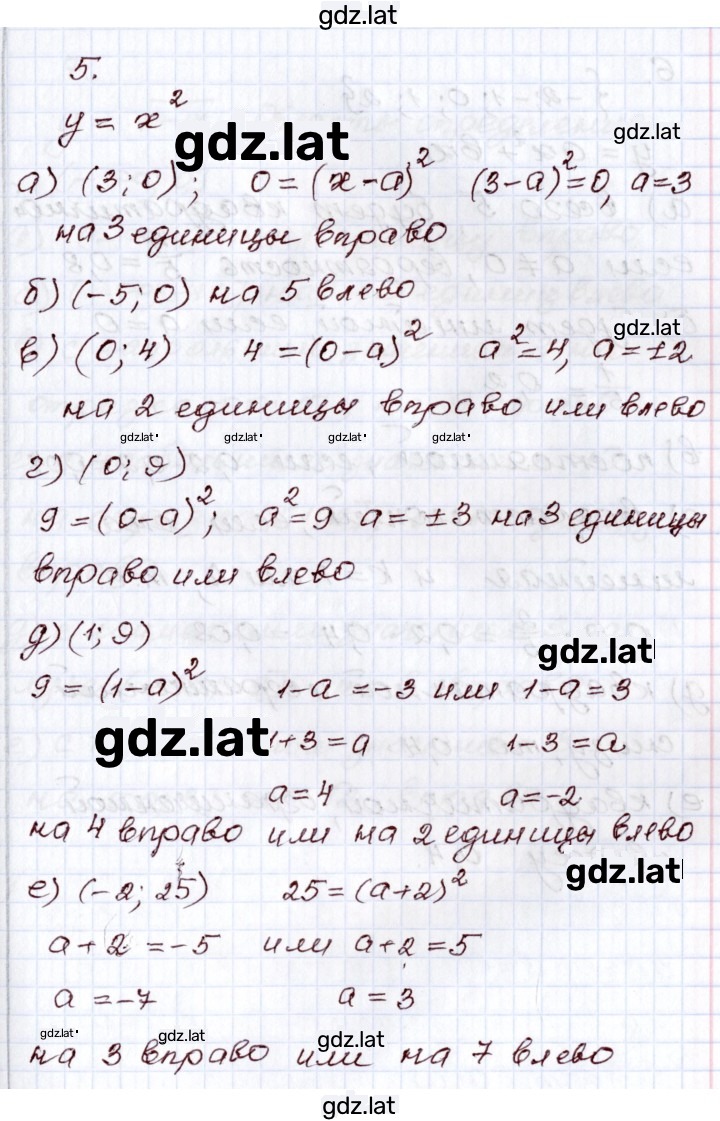 gdz.lat
5.
y = x²
gdz.lat
gdz.lat
а) (3; 0); 0 = (x-a)² (3-a)²=0, a=3
на 3 единицы вправо
б) (-5; 0) на 5 влево
gdz.lat
в) (0; 4) 4 = (0-a)² a²=4, a=±2
на 2 единицы вправо или влево
gdz.lat gdz.lat gdz.lat gdz.lat
г) (0; 9)
9 = (0-a)²; a²=9 a = ±3 на 3 единицы
вправо или влево
д) (1; 9)
gdz.lat
9 = (1-a)² 1-a = -3 или 1-a = 3
gdz.lat 1+3 = a 1-3 = a
a = 4 a = -2
на 4 вправо или на 2 единицы влево
gdz.lat
е) (-2; 25) 25 = (a+2)²
a+2 = -5 или a+2 = 5
a = -7 a = 3
gdz.lat gdz.lat gdz.lat
на 3 вправо или на 7 влево
gdz.lat